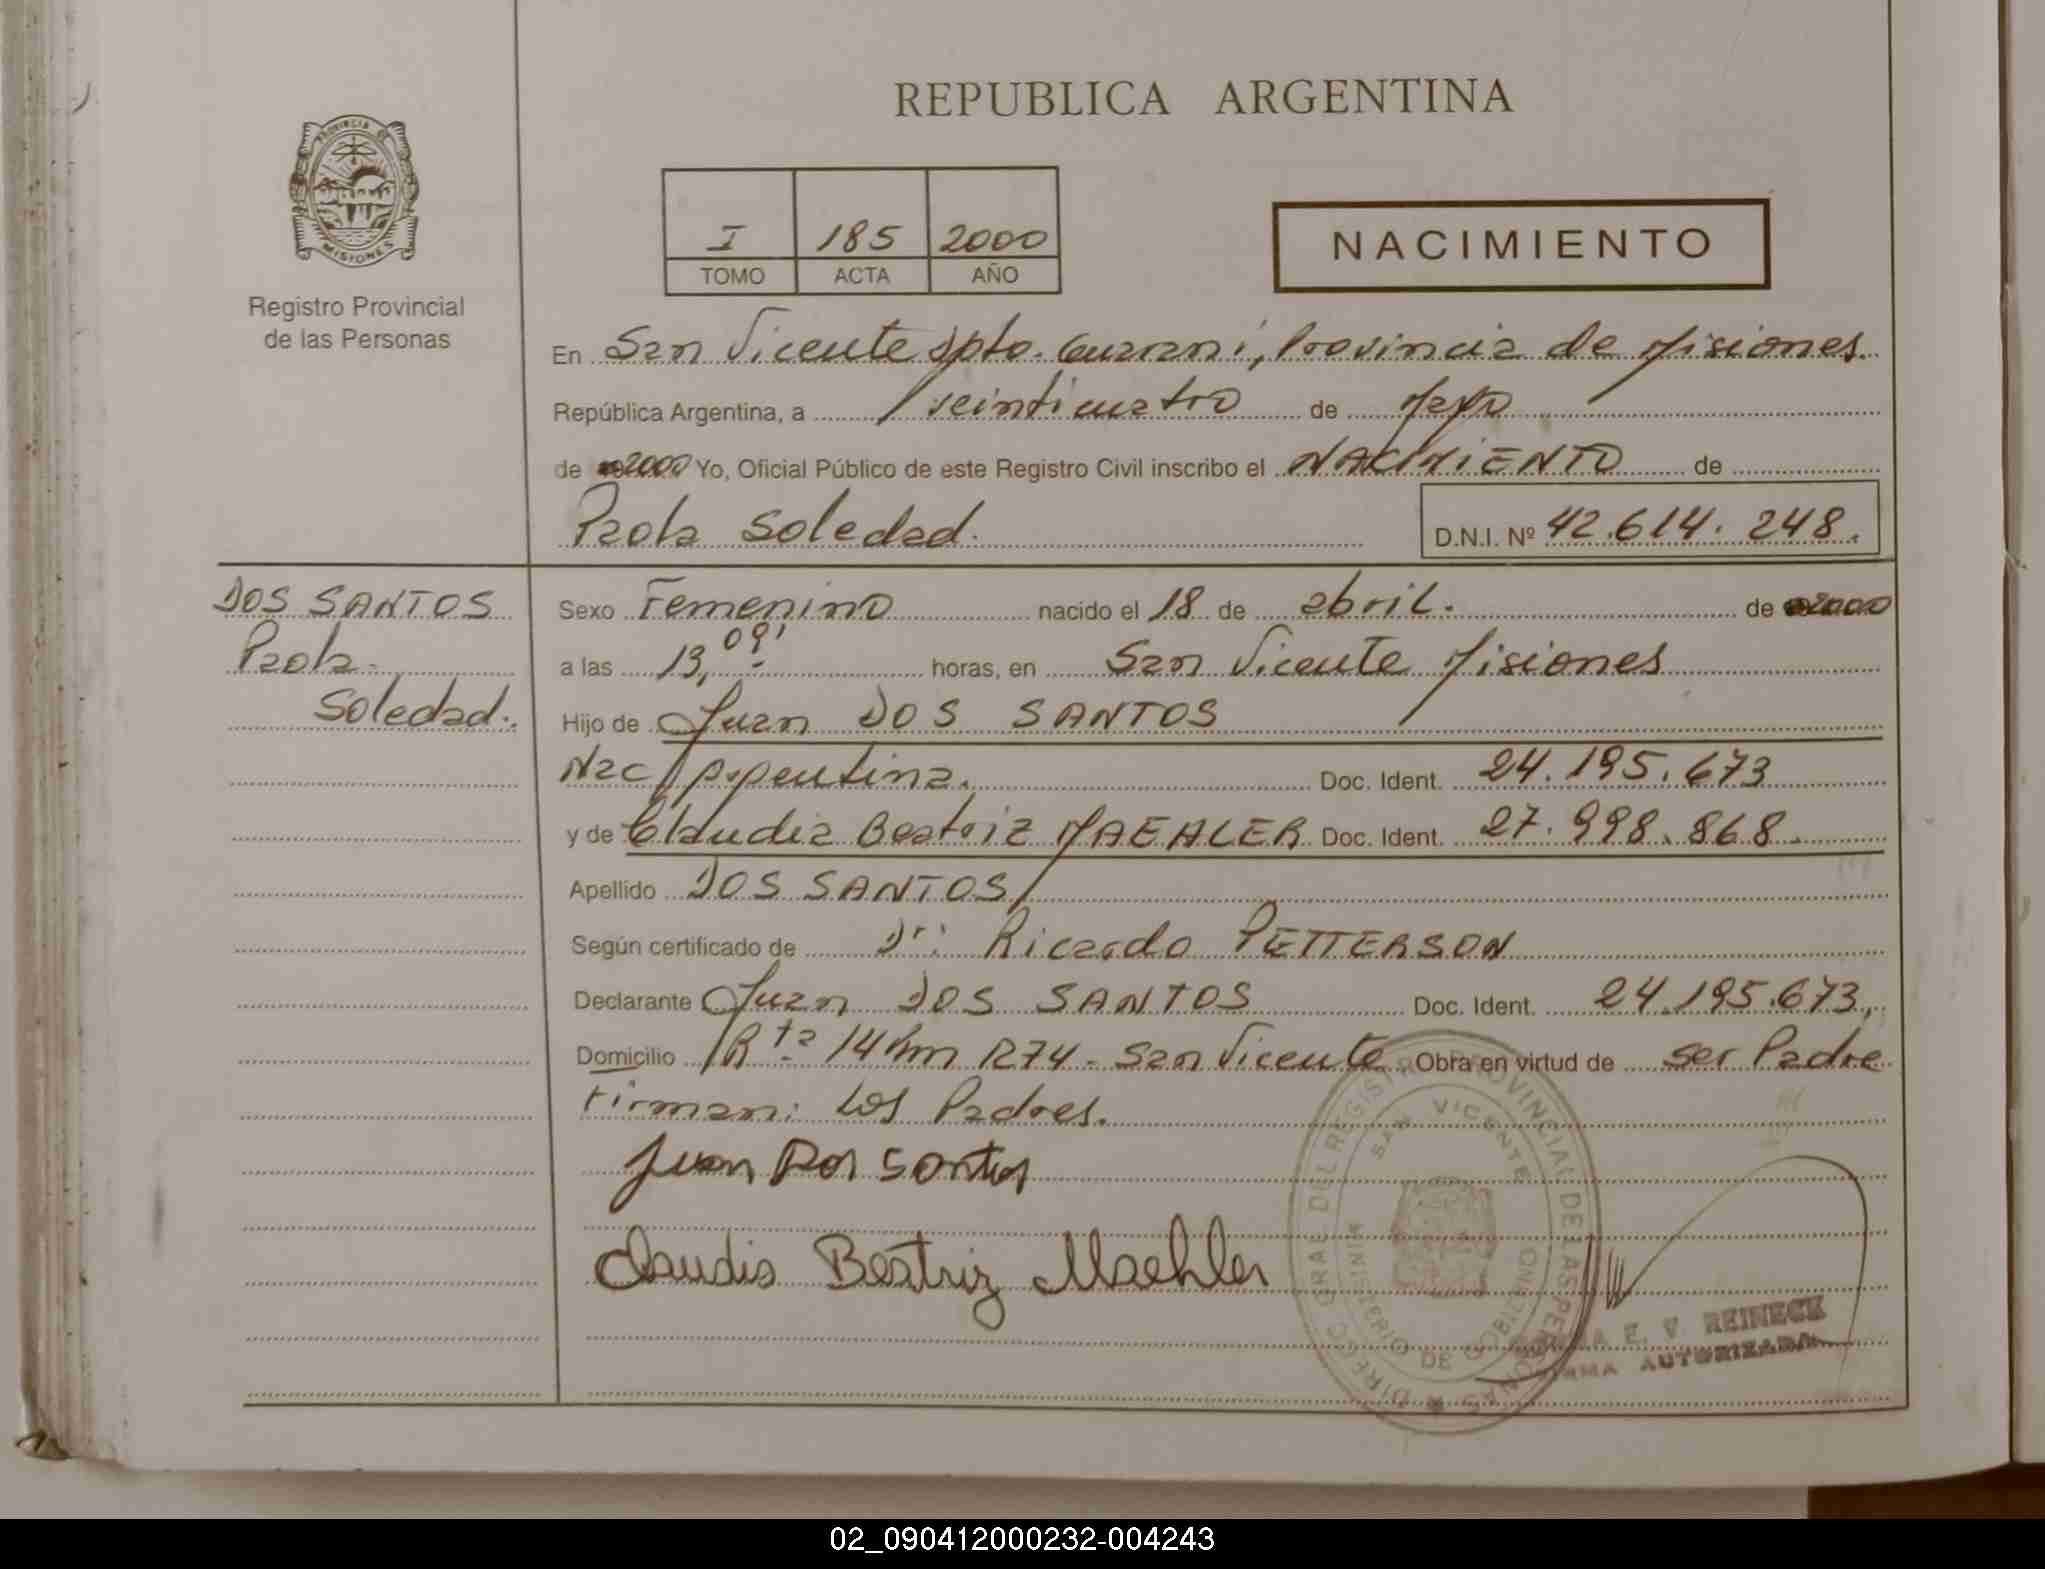 REPUBLICA ARGENTINA
PROVINCIA DE
MISIONES
Registro Provincial
de las Personas
I 185 2000
TOMO ACTA AÑO
NACIMIENTO
En San Vicente Dpto. Guaraní, Provincia de Misiones.
República Argentina, a veinticuatro de Mayo
de 2000 Yo, Oficial Público de este Registro Civil inscribo el NACIMIENTO de
Paola Soledad. D.N.I. Nº 42.614.248.
DOS SANTOS
Paola
Soledad.
Sexo Femenino nacido el 18 de abril. de 2000
a las 13,09' horas, en San Vicente Misiones
Hijo de Juan DOS SANTOS
Nac/Argentina. Doc. Ident. 24.195.673
y de Claudia Beatriz MAEHLER Doc. Ident. 27.998.868.
Apellido DOS SANTOS
Según certificado de Dr: Ricardo PETTERSON
Declarante Juan DOS SANTOS Doc. Ident. 24.195.673,
Domicilio Rta 14 km 1274 - San Vicente Obra en virtud de ser Padre
Firman: Los Padres.
Juan Dos Santos
Claudia Beatriz Maehler
DIRECC GRAL DEL REGISTRO PROVINCIAL DE LAS PERSONAS
SAN VICENTE
MINISTERIO DE GOBIERNO
E. V. REINECK
FIRMA AUTORIZADA
02_090412000232-004243